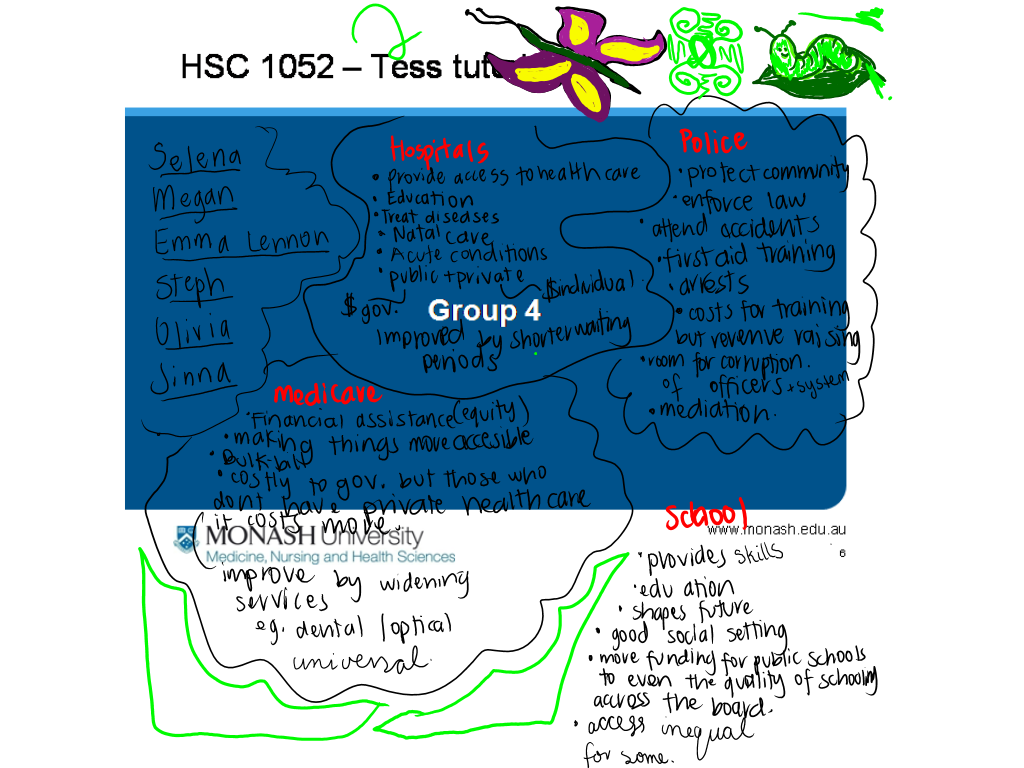 HSC 1052 – Tess tuto
Selena
Megan
Emma Lennon
Steph
Olivia
Jinna
Hospitals
• provide access to health care
• Education
• Treat diseases
• Natal care
• Acute conditions
• public + private
$gov.
$individual
Group 4
improved by shorter waiting
periods
Police
• protect community
• enforce law
• attend accidents
• first aid training
• arrests
• costs for training
but revenue raising
• room for corruption.
of officers + system
• mediation.
medicare
• Financial assistance (equity)
• making things more accesible
• Bulk-bill
• costly to gov. but those who
dont have private health care
it costs more.
MONASH University
Medicine, Nursing and Health Sciences
improve by widening
services
eg. dental / optical
universal.
School
www.monash.edu.au
6
• provides skills
• edu ation
• shapes future
• good social setting
• more funding for public schools
to even the quality of schooling
across the board.
• access inequal
for some.